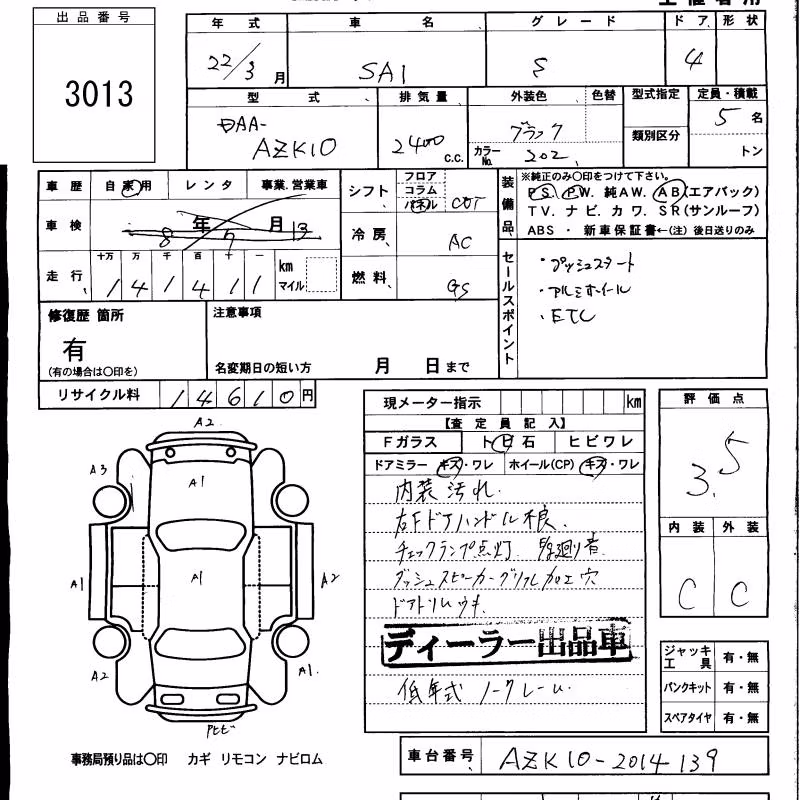 出品番号
3013
年式 車名 グレード ドア 形状
22/3月 SAI S 4
型式 排気量 外装色 色替 型式指定 定員・積載
DAA-
AZK10 2400 c.c. ブラック カラーNo. 202 類別区分 5名
トン
車歴 自家用 レンタ 事業.営業車
シフト フロア コラム パネル CVT
装備品 ※純正のみ〇印をつけて下さい。
PS. PW. 純AW. AB(エアバック)
TV. ナビ. カワ. SR(サンルーフ)
ABS ・ 新車保証書←(注) 後日送りのみ
車検 8年7月13
冷房 AC
走行 十万 万 千 百 十 一
141411 km マイル
燃料 GS
セールスポイント
・プッシュスタート
・アルミホイール
・ETC
修復歴 箇所
有
(有の場合は〇印を)
注意事項
名変期日の短い方 月 日まで
リサイクル料 14610円
現メーター指示 km
【査定員記入】
Fガラス トビ石 ヒビワレ
ドアミラー キズ・ワレ ホイール(CP) キズ・ワレ
内装汚れ.
右Fドアハンドル不良.
チェックランプ点灯.
ダッシュスピーカーグリル加工穴
ドアトリムウキ.
ディーラー出品車
低年式 ノークレーム.
評価点
3.5
内装 外装
C C
ジャッキ工具 有・無
パンクキット 有・無
スペアタイヤ 有・無
A2
A3
A1
A1
A1
A2
A2
A1.
事務局預り品は〇印 カギ リモコン ナビロム
車台番号 AZK10-2014139